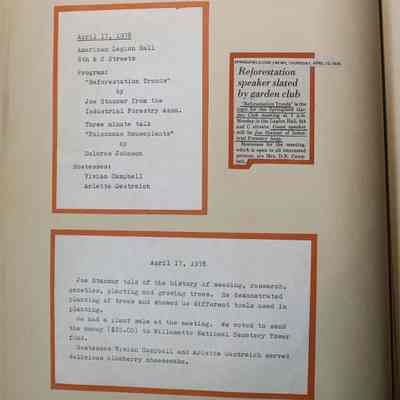 April 17, 1978
American Legion Hall
5th & C Streets
Program:
"Reforestation Trends"
by
Joe Stanzur from the
Industrial Forestry Assn.
Three minute talk
"Poisonous Houseplants"
by
Delores Johnson
Hostesses:
Vivian Campbell
Arlette Oestreich
NEWS, THURSDAY, APRIL 13, 1978
Reforestation
speaker slated
by garden club
"Reforestation Trends" is the
topic for the Springfield Gar-
den Club meeting at 1 p.m.
Monday in the Legion Hall, 5th
and C streets. Guest speaker
will be Joe Stanzur of Indus-
trial Forestry Assn.
Hostesses for the meeting,
which is open to all interested
persons, are Mrs. D.R. Camp-
bell
April 17, 1978
Joe Stanzur told of the history of seeding, research,
genetics, planting and growing trees. He demonstrated
planting of trees and showed us different tools used in
planting.
We had a plant sale at the meeting. We voted to send
the money ($20.00) to Willamette National Cemetery Tower
fund.
Hostesses Vivian Campbell and Arlette Oestreich served
delicious blueberry cheesecake.